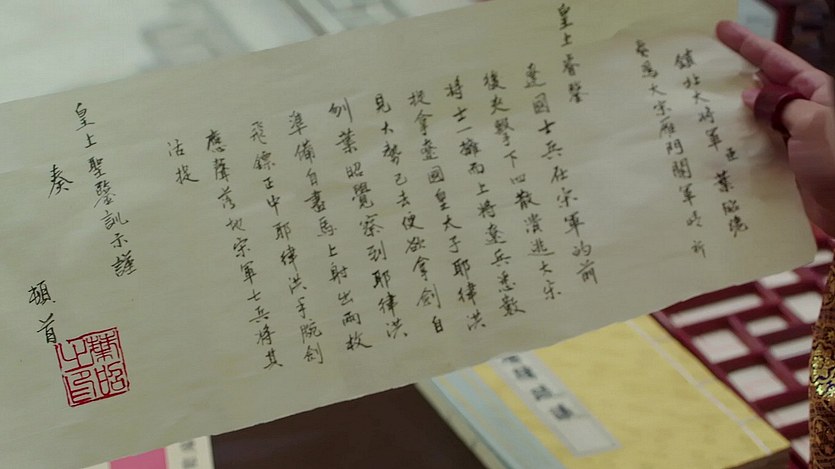 鎮北大將軍臣葉昭謹
奏為大宋雁門關軍情祈
皇上睿鑒
遼國士兵在宋軍的前
後夾擊下四散潰逃大宋
將士一擁而上將遼兵悉數
捉拿遼國皇太子耶律洪
見大勢已去便欲拿劍自
刎葉昭覺察到耶律洪
準備自盡馬上射出兩枚
飛鏢正中耶律洪手腕劍
應聲落地宋軍士兵將其
活捉
皇上聖鑒訓示謹
奏
頓首
葉昭之印